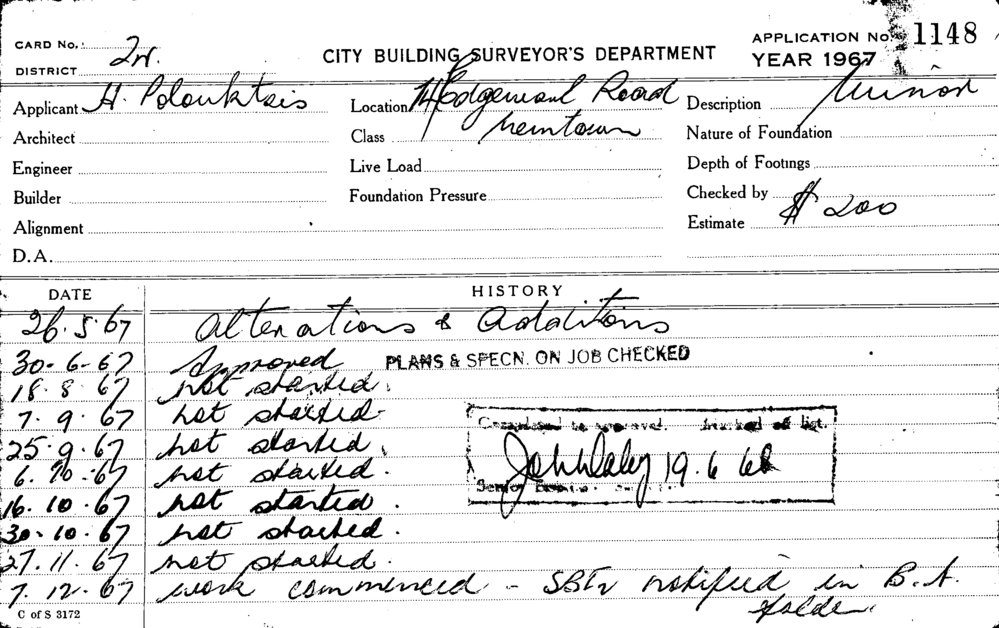 CARD No. 2n.
CITY BUILDING SURVEYOR'S DEPARTMENT
APPLICATION No. 1148
DISTRICT
YEAR 1967
Applicant H.
Location 14 Edgeware Road
Description Minor
Architect
Class Newtown
Nature of Foundation
Engineer
Live Load
Depth of Footings
Builder
Foundation Pressure
Checked by
Alignment
Estimate $ 200
D.A.
DATE
HISTORY
26.5.67 Alterations & Additions
30-6-67 Approved PLANS & SPECN. ON JOB CHECKED
18.8.67 not started.
7.9.67 not started.
25.9.67 not started.
6.10.67 not started.
16.10.67 not started.
30.10.67 not started.
27.11.67 not started.
7.12.67 work commenced - notified in B.A. folder.
Completed as approved. Marked off list.
John Daley 19.6.68
Senior
C of S 3172